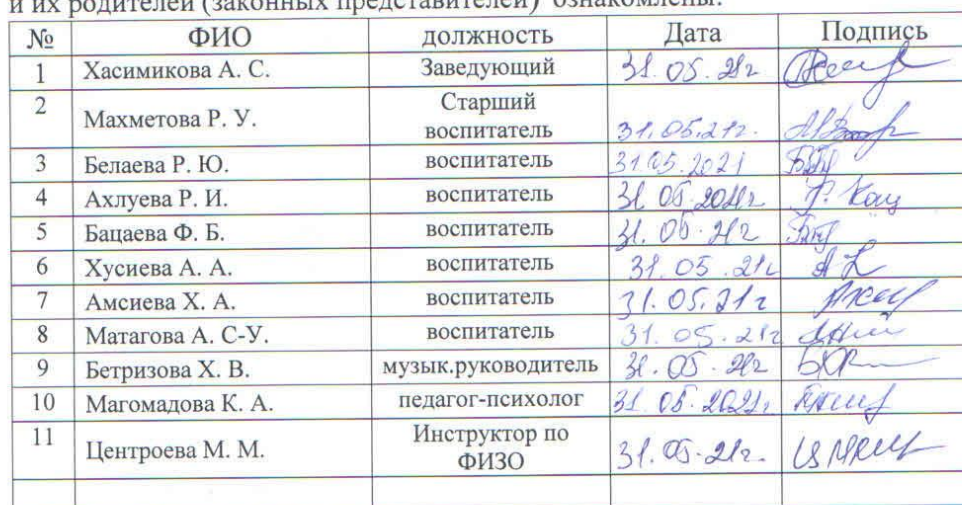 и их родителей (законных представителей) ознакомлены:
№ ФИО должность Дата Подпись
1 Хасимикова А. С. Заведующий 31.05.21г
2 Махметова Р. У. Старший воспитатель 31.05.21г.
3 Белаева Р. Ю. воспитатель 31.05.2021
4 Ахлуева Р. И. воспитатель 31.05.2021г
5 Бацаева Ф. Б. воспитатель 31.05.21г
6 Хусиева А. А. воспитатель 31.05.21г
7 Амсиева Х. А. воспитатель 31.05.21г
8 Матагова А. С-У. воспитатель 31.05.21г
9 Бетризова Х. В. музык.руководитель 31.05.21г
10 Магомадова К. А. педагог-психолог 31.05.2021г
11 Центроева М. М. Инструктор по ФИЗО 31.05.21г.